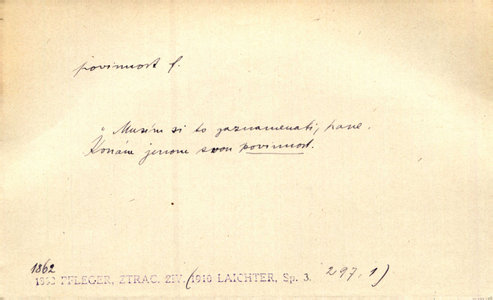 povinnost f.
„ Musím si to zaznamenati, pane.
Konám jenom svou povinnost.
1862
1863 PFLEGER, ZTRAC. ŽIV. (1910 LAICHTER, Sp. 3. 297,1)